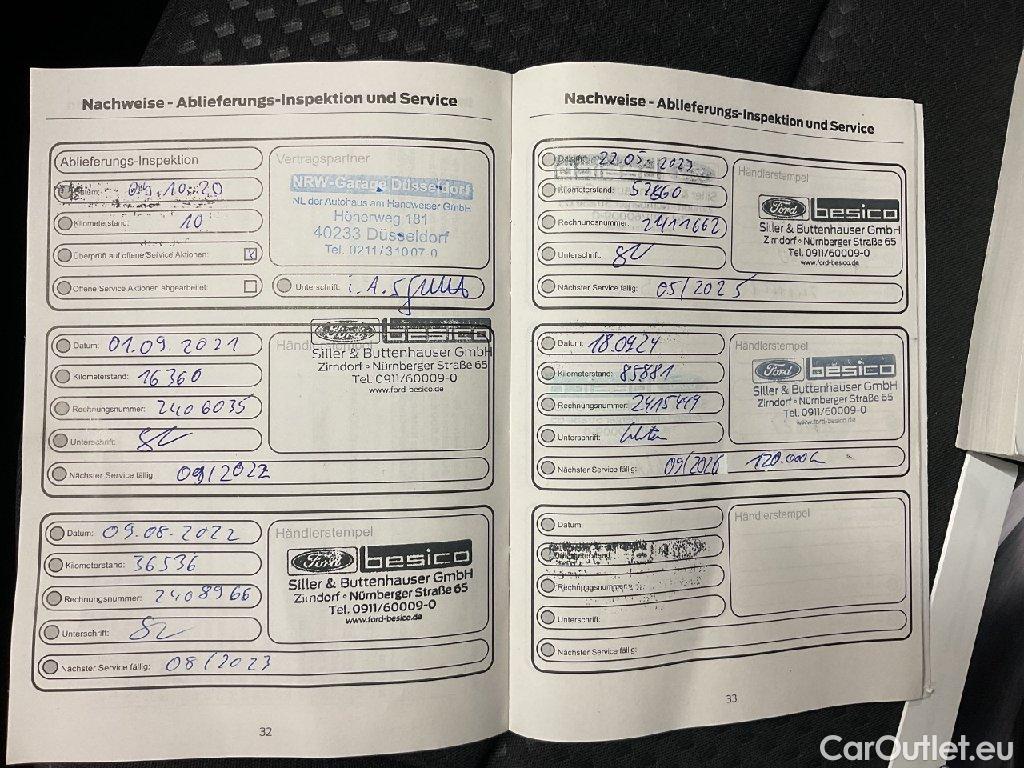 Nachweise - Ablieferungs-Inspektion und Service
Ablieferungs-Inspektion
Vertragspartner
09.10.20
NRW-Garage Düsseldorf
NL der Autohaus am Handweiser GmbH
Höherweg 181
40233 Düsseldorf
Tel. 0211/31007-0
Kilometerstand: 10
Überprüft auf offene Service Aktionen:
Offene Service Aktionen abgearbeitet:
Unterschrift: i.A.
Datum: 01.09.2021
Händlerstempel
Ford besico
Siller & Buttenhauser GmbH
Zirndorf • Nürnberger Straße 65
Tel. 0911/60009-0
www.ford-besico.de
Kilometerstand: 16360
Rechnungsnummer: 2406035
Unterschrift:
Nächster Service fällig: 09/2022
Datum: 09.08.2022
Händlerstempel
Ford besico
Siller & Buttenhauser GmbH
Zirndorf • Nürnberger Straße 65
Tel. 0911/60009-0
www.ford-besico.de
Kilometerstand: 36536
Rechnungsnummer: 2408966
Unterschrift:
Nächster Service fällig: 08/2023
32
Nachweise - Ablieferungs-Inspektion und Service
Datum: 22.05.2023
Händlerstempel
Ford besico
Siller & Buttenhauser GmbH
Zirndorf • Nürnberger Straße 65
Tel. 0911/60009-0
www.ford-besico.de
Kilometerstand: 52860
Rechnungsnummer: 2411662
Unterschrift:
Nächster Service fällig: 05/2025
Datum: 18.09.24
Händlerstempel
Ford besico
Siller & Buttenhauser GmbH
Zirndorf • Nürnberger Straße 65
Tel. 0911/60009-0
www.ford-besico.de
Kilometerstand: 85881
Rechnungsnummer: 2415449
Unterschrift:
Nächster Service fällig: 09/2026 120.000
Datum:
Händlerstempel
Rechnungsnummer:
Unterschrift:
Nächster Service fällig:
33
CarOutlet.eu